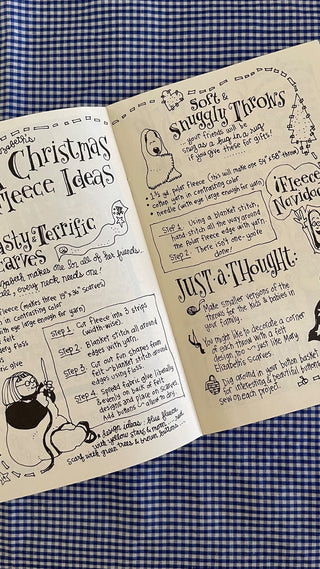 Christmas
Fleece Ideas
Terrific
makes one for all of her friends.
all, every neck needs one!
fleece (makes three 19" x 36" scarves)
in contrasting color
with eye large enough for yarn)
floss
glue
Step 1: Cut fleece into 3 strips
(width-wise).
Step 2: Blanket stitch all around
edges with yarn.
Step 3: Cut out fun shapes from
felt - blanket stitch around
edges using floss.
Step 4: Spread fabric glue liberally
& evenly on back of felt
designs and place on scarves.
Add buttons - allow to dry.
design ideas: blue fleece
with yellow stars & moon... red
scarf with green trees & brown buttons...
Soft &
Snuggly Throws
your friends will be
snug as a bug in a rug
if you give these for gifts!
1½ yd. polar fleece (this will make one 54" x 58" throw)
cotton yarn in contrasting color
needle (with eye large enough for yarn)
¡Fleece
Navidad
Step 1: Using a blanket stitch,
hand stitch all the way around
the polar fleece edge with yarn.
Step 2: There isn't one - you're
done!
Just-a-Thought:
Make smaller versions of the
throws for the kids & babies in
your family.
You might like to decorate a corner
of each throw with a felt
design too - just like Mary
Elizabeth's scarves.
Dig around in your button basket
for interesting & beautiful buttons
sew on each project.